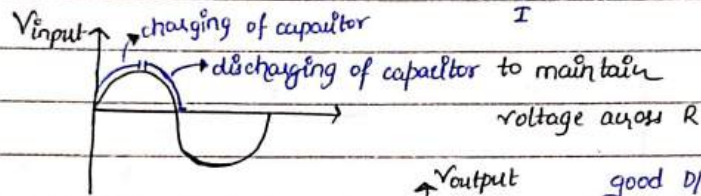 I
Vinput
charging of capacitor
discharging of capacitor to maintain
voltage across R
Voutput good D/